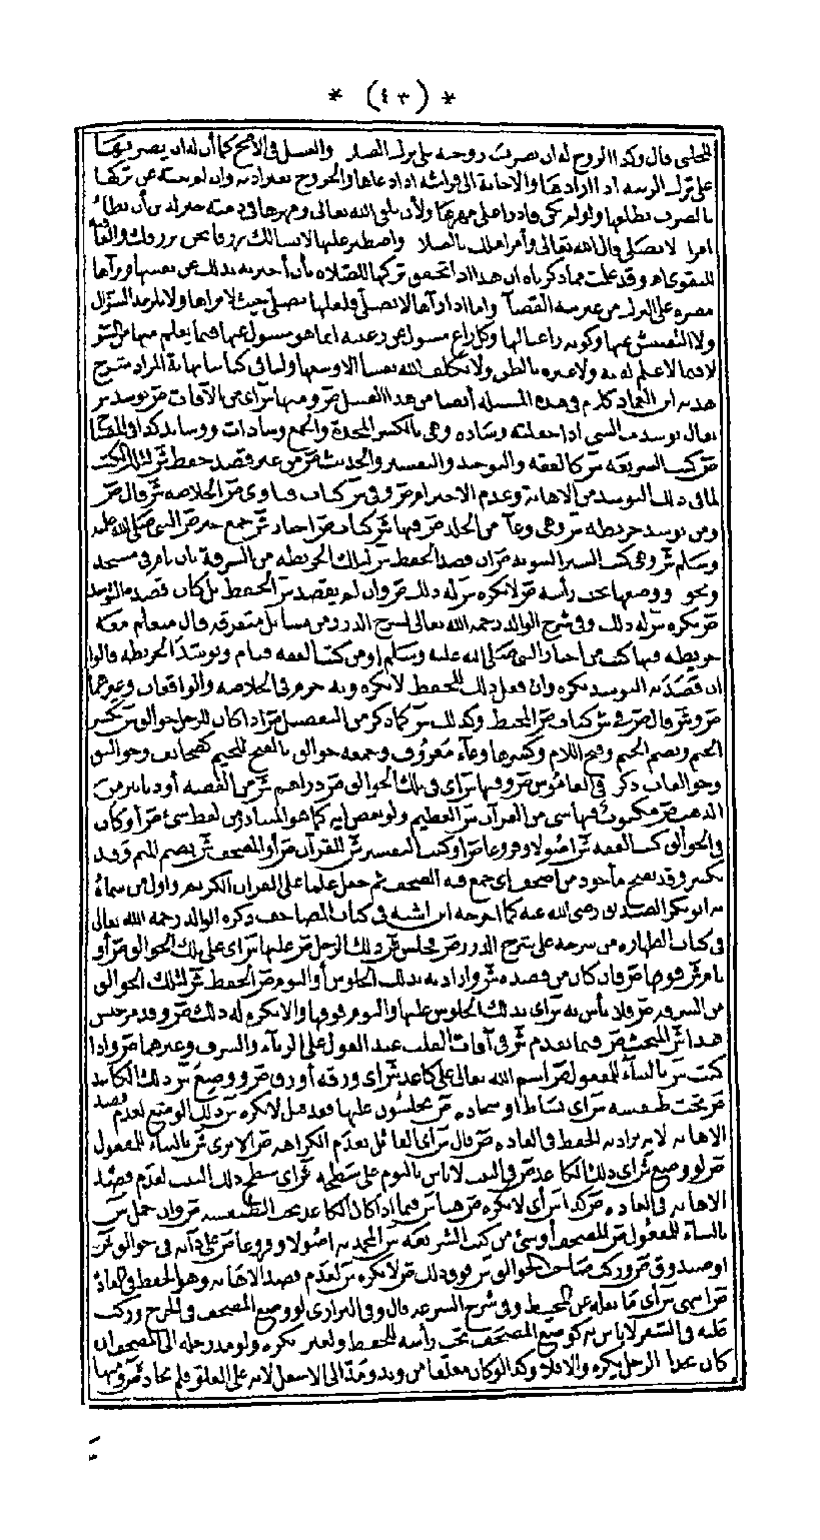 * (٤٣) *
المجلبي قال وكذا الزوج له ان يضرب زوجته على ترك الصلاة والغسل في الاصح كما أن له ان يضربها
على ترك الزينة اذا ارادها والاجابة الى فراشه اذا دعاها والخروج بغير اذنه وان لم ينته عن تركها
بالضرب يطلقها ولو لم يكن قادرا على مهرها ولأن يلقى الله تعالى ومهرها في ذمته خير له من أن يطأ
امرأة لا تصلي قال الله تعالى وأمر اهلك بالصلاة واصطبر عليها لا نسألك رزقا نحن نرزقك والعاقبة
للتقوى اه وقد علمت مما ذكرناه ان هذا اذا تحقق تركها للصلاة بأن أخبرته بذلك عن نفسها او رآها
مصرة على الترك من غير نية القضآ واما اذا رآها لا تصلي فلعلها تصلي حيث لا يراها ولا يلزمه السؤال
ولا التفتيش عنها وكونه راعيا لها وكل راع مسؤل عن رعيته انما هو مسؤل عنها فيما يعلم منها من السوء
لا فيما لا علم له به ولا عبرة بالظن ولا يكلف الله نفسا الا وسعها ولنا في كتابنا نهاية المراد شرح
هدية ابن العماد كلام في هذه المسئلة أيضا من هذا الفصل ص ومنها ش أي من الآفات ص توسد ش
يقال توسدت الشيء اذا جعلته وسادة وهي بالكسر المخدة والجمع وسادات ووسائد كذا في المصباح
ص كتب الشريعة ش كالفقه والتوحيد والتفسير والحديث ص من غير قصد حفظ ش لتلك الكتب
لما في ذلك التوسد من الاهانة وعدم الاحترام ص وفي ش كتاب فتاوى ص الخلاصة ش قال ص
ومن توسد خريطة ش وهي وعآء من الجلد ص فيها ش كتاب ص اخبار ش جمع خبر ص النبي صلى الله عليه
وسلم ش وهي كتب السير النبوية ص ان قصد الحفظ ش لتلك الخريطة من السرقة بان نام في مسجد
ونحوه ووضعها تحت رأسه ص لا يكره ش له ذلك ص وان لم يقصد ش الحفظ بل كان قصده التوسد
ص يكره ش له ذلك وفي شرح الوالد رحمه الله تعالى لشرح الدرر من مسائل متفرقة قال متعلم معه
خريطة فيها كتب من اخبار النبي صلى الله عليه وسلم او من كتب الفقه فنام وتوسد الخريطة قالوا
ان قصد به التوسد يكره وان فعل ذلك للحفظ لا يكره وبه جزم في الخلاصة والواقعات وغيرهما
ص و ش قال ص في ش كتاب ص المحيط وكذلك ش كما ذكر من التفصيل ص اذا كان للرجل جوالق ش بكسر
الجيم وبضم الجيم وفتح اللام وكسرها وعآء معروف وجمعه جوالق بالفتح للجيم كصحائف وجواليق
وجوالقات ذكره في القاموس ص وفيها ش أي في تلك الجوالق ص دراهم ش من الفضة أو دنانير من
الذهب ص مكتوب فيها شيء من القرآن ش العظيم ولو بعض آية كما هو المتبادر من لفظ شيء ص أو كان
في الجوالق كتب الفقه ش اصولا وفروعا ص او كتب التفسير ش للقرآن ص أو المصحف ش بضم الميم وقد
تكسر وقد تفتح مأخوذ من اصحف اي جمع فيه الصحف ثم جعل علما على القرآن الكريم واول من سماه
به ابو بكر الصديق رضي الله عنه كما اخرجه ابن اشته في كتاب المصاحف ذكره الوالد رحمه الله تعالى
في كتاب الطهارة من شرحه على شرح الدرر ص فجلس ش ذلك الرجل ص عليها ش اي على تلك الجوالق ص أو
نام ش فوقها ص فان كان من قصده ش وارادته بذلك الجلوس أو النوم ص الحفظ ش لتلك الجوالق
من السرقة ص فلا بأس به ش اي بذلك الجلوس عليها والنوم فوقها والا يكره له ذلك ص وقد مر جنس
هذا ش المبحث ص فيما تقدم ش في آفات القلب عند القول على الريآء والسرف وغيرهما ص واذا
كتب ش بالبنآء للمفعول ص اسم الله تعالى على كاغد ش اي ورقة أو رق ص ووضع ش ذلك الكاغد
ص تحت طنفسة ش اي بساط او سجادة ص يجلسون عليها فقد قيل لا يكره ش ذلك الوضع لعدم قصد
الاهانة لانه يراد به الحفظ في العادة ص قال ش أي القائل بعدم الكراهة ص الا ترى ش بالبنآء للمفعول
ص لو وضع ش اي ذلك الكاغد ص في البيت لا باس بالنوم على سطحه ش اي سطح ذلك البيت لعدم قصد
الاهانة في العادة ص كذا ش أي لا يكره ص هنا ش فيما اذا كان الكاغد تحت الطنفسة ص وان حمل ش
بالبنآء للمفعول ص المصحف أو شيء من كتب الشريعة ش المحمدية اصولا وفروعا ص على دابة في جوالق ش
او صندوق ص وركب صاحب الجوالق ش فوق ذلك ص لا يكره ش لعدم قصد الاهانة وهو الحفظ في العادة
ص انتهى ش أي ما نقله عن المحيط وفي شرح الشرعة قال وفي البزازي لو وضع المصحف في الخرج وركب
عليه في السفر لا باس به كوضع المصحف تحت رأسه للحفظ ولغيره يكره ولو مد رجله الى المصحف ان
كان بحذاء الرجل يكره والا فلا وكذا لو كان معلقا من وتد ومد الى الاسفل لانه على العلو فلم يحاذه ص ومنها